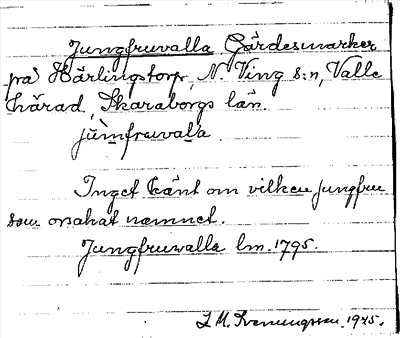 Jungfruvalla Gärdesmarker
på Härlingstorp, N. Ving s:n, Valle
härad, Skaraborgs län.
jùmfruvala
Inget känt om vilken jungfru
som orsakat namnet.
Jungfruvalla lm. 1795.
1925.